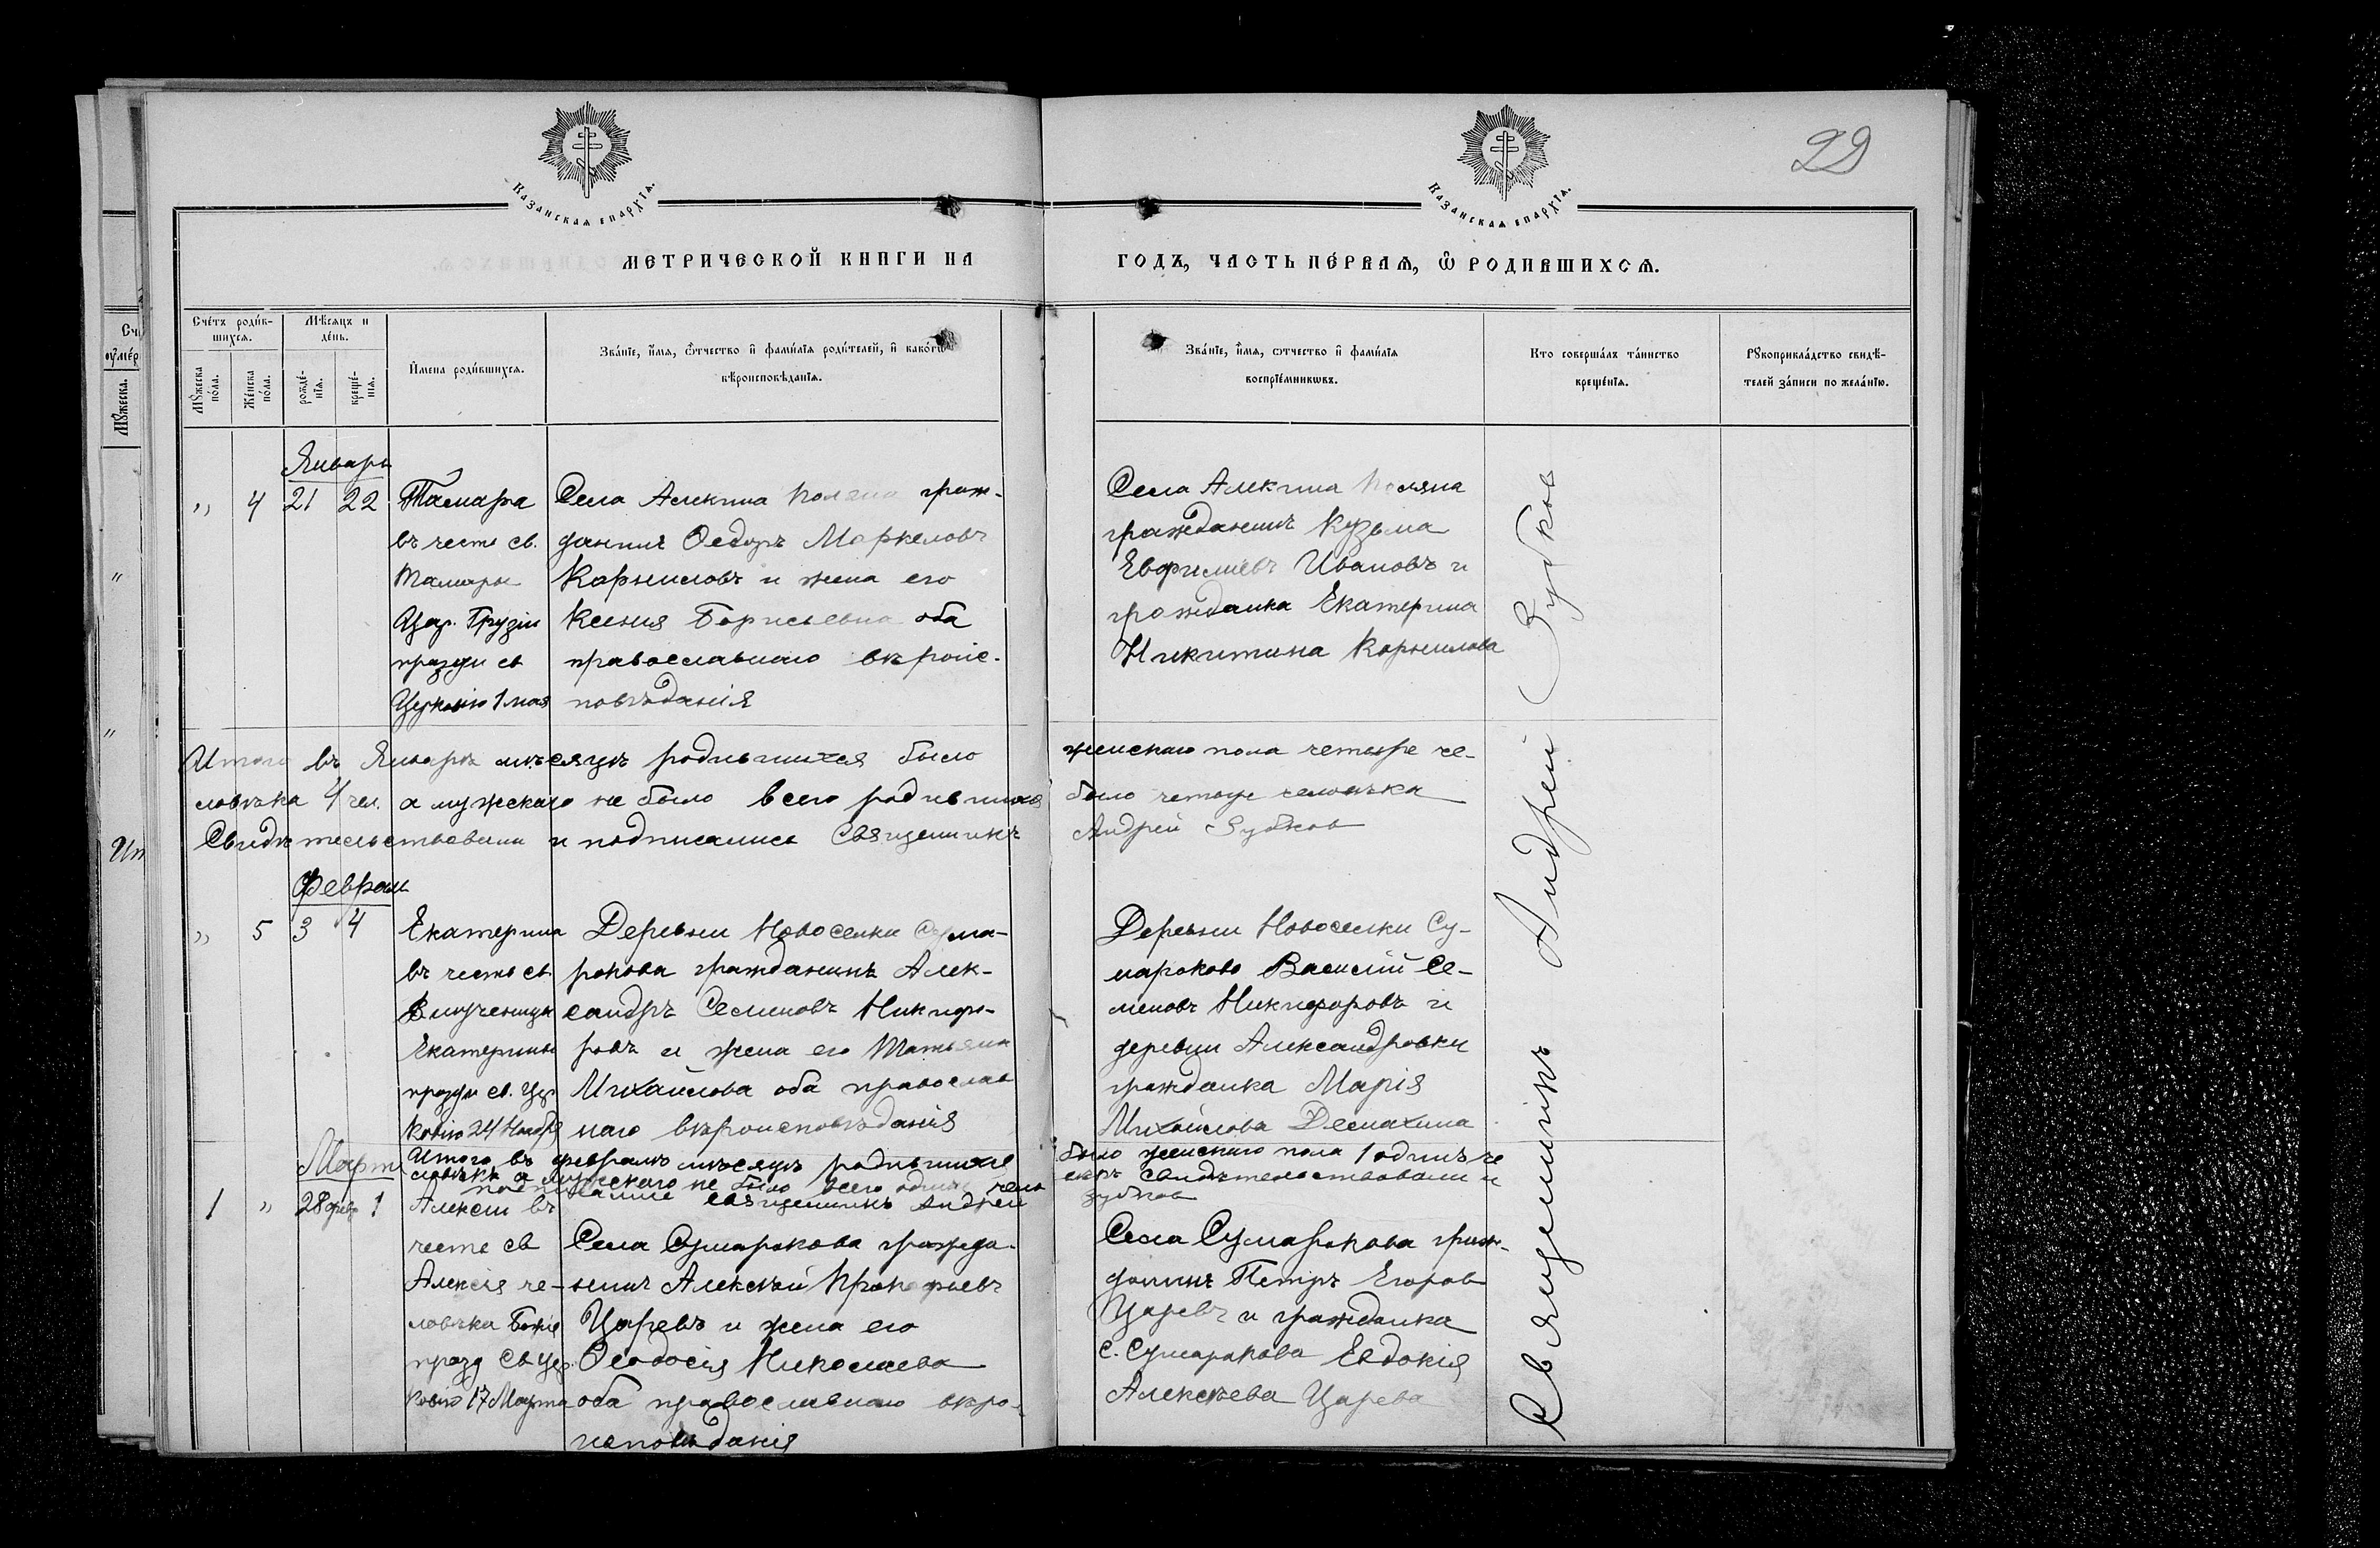 29
Казанская епархїѧ.
Казанская епархїѧ.
МЕТРИЧЕСКОЙ КНИГИ НА
ГОДЪ, ЧАСТЬ ПЕ́РВАѦ, Ѽ РОДИВШИХСѦ.
Сче́тъ роди́в-
шихсѧ.
Мѣ́сѧцъ и
де́нь.
Мꙋ́жеска
по́ла.
Же́нска
по́ла.
рожде́-
нїѧ.
креще́-
нїѧ.
И́мена роди́вшихсѧ.
Зва́нїе, и́мѧ, ѻ́тчество и́ фами́лїѧ роди́телей, и́ како́гѡ
вѣроисповѣ́данїѧ.
Зва́нїе, и́мѧ, ѻ́тчество и́ фами́лїѧ
воспрїе́мникѡвъ.
Кто соверша́лъ та́инство
креще́нїѧ.
Рꙋкоприкла́дство свидѣ́-
телей за́писи по жела́нїю.
Январь
„ 4 21 22 Тамара
въ честь св.
Тамары
Цар. Грузіи
праздн св
Церковію 1 мая
Села Алекина Поляна граж-
данинъ Ѳедоръ Маркеловъ
Корниловъ и жена его
Ксенія Борисьевна оба
православнаго вѣроис-
повѣданія
Села Алекина Поляна
гражданинъ Кузьма
Евфимиевъ Ивановъ и
гражданка Екатерина
Никитина Корнилова
Итого въ Январѣ мѣсяцѣ родившихся было женскаго пола четыре че-
ловѣка 4 чел. а мужскаго не было всего родившихся было четыре человѣка
Свидѣтельствовали и подписались Священникъ Андрей Зубков
Феврал
„ 5 3 4 Екатерина
въ честь св.
В мученицы
Екатерины
праздн св. Цер
ковію 24 Ноября
Деревни Новоселки Сума-
рокова гражданинъ Алек-
сандръ Семеновъ Никифо-
ровъ и жена его Татьяна
Михайлова оба православ
наго вѣроисповѣданія
Деревни Новоселки Су-
мароково Василій Се-
меновъ Никифоровъ и
деревни Александровки
гражданка Марія
Михайлова
Март
Итого въ февралѣ мѣсяцѣ родившихся было женскаго пола 1 одинъ че
ловѣкъ а мужскаго не было всего одинъ чело вѣкъ свидѣтельствовали и
подписались священникъ Андрей Зубков
1 „ 28 февр 1 Алексій въ
честь св
Алексія че-
ловѣка Божіе
празд св Цер
ковію 17 Марта
Села Сумарокова гражда-
нинъ Алексѣй Прокофьевъ
Царевъ и жена его
Ѳеодосія Николаева
оба православнаго вѣро-
исповѣданія
Села Сумарокова граж-
данинъ Петръ Егоров
Царевъ и гражданка
с. Сумарокова Евдокія
Алексѣева Царева
Священникъ Андрей Зубков